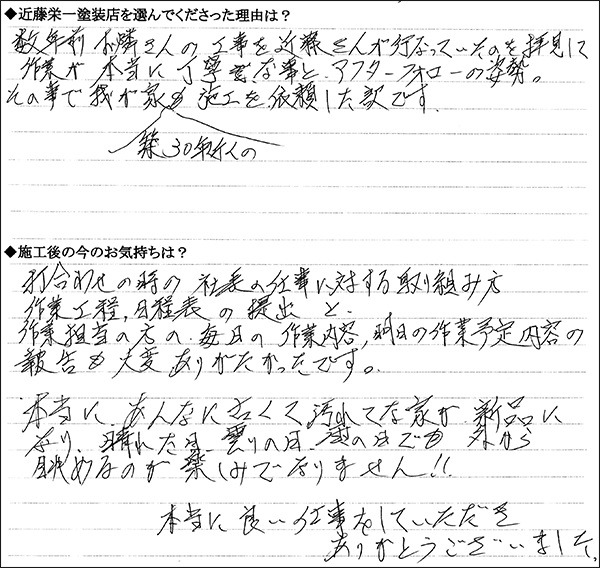 ◆近藤栄一塗装店を選んでくださった理由は？
数年前お隣さんの工事を近藤さんが行なっていたのを拝見して
作業が本当に丁寧な事と、アフターフォローの姿勢。
その事で我が家も施工を依頼した訳です。
築30年近くの
◆施工後の今のお気持ちは？
打合わせの時の社長の仕事に対する取り組み方
作業工程,日程表の提出と、
作業担当の方の毎日の作業内容,明日の作業予定内容の
報告も大変ありがたかったです。
本当に、あんなに古くて汚れてた家が新品に
なり、晴れた日、曇りの日、雨の日でも外から
眺めるのが楽しみでなりません!!
本当に良い仕事をしていただき
ありがとうございました。